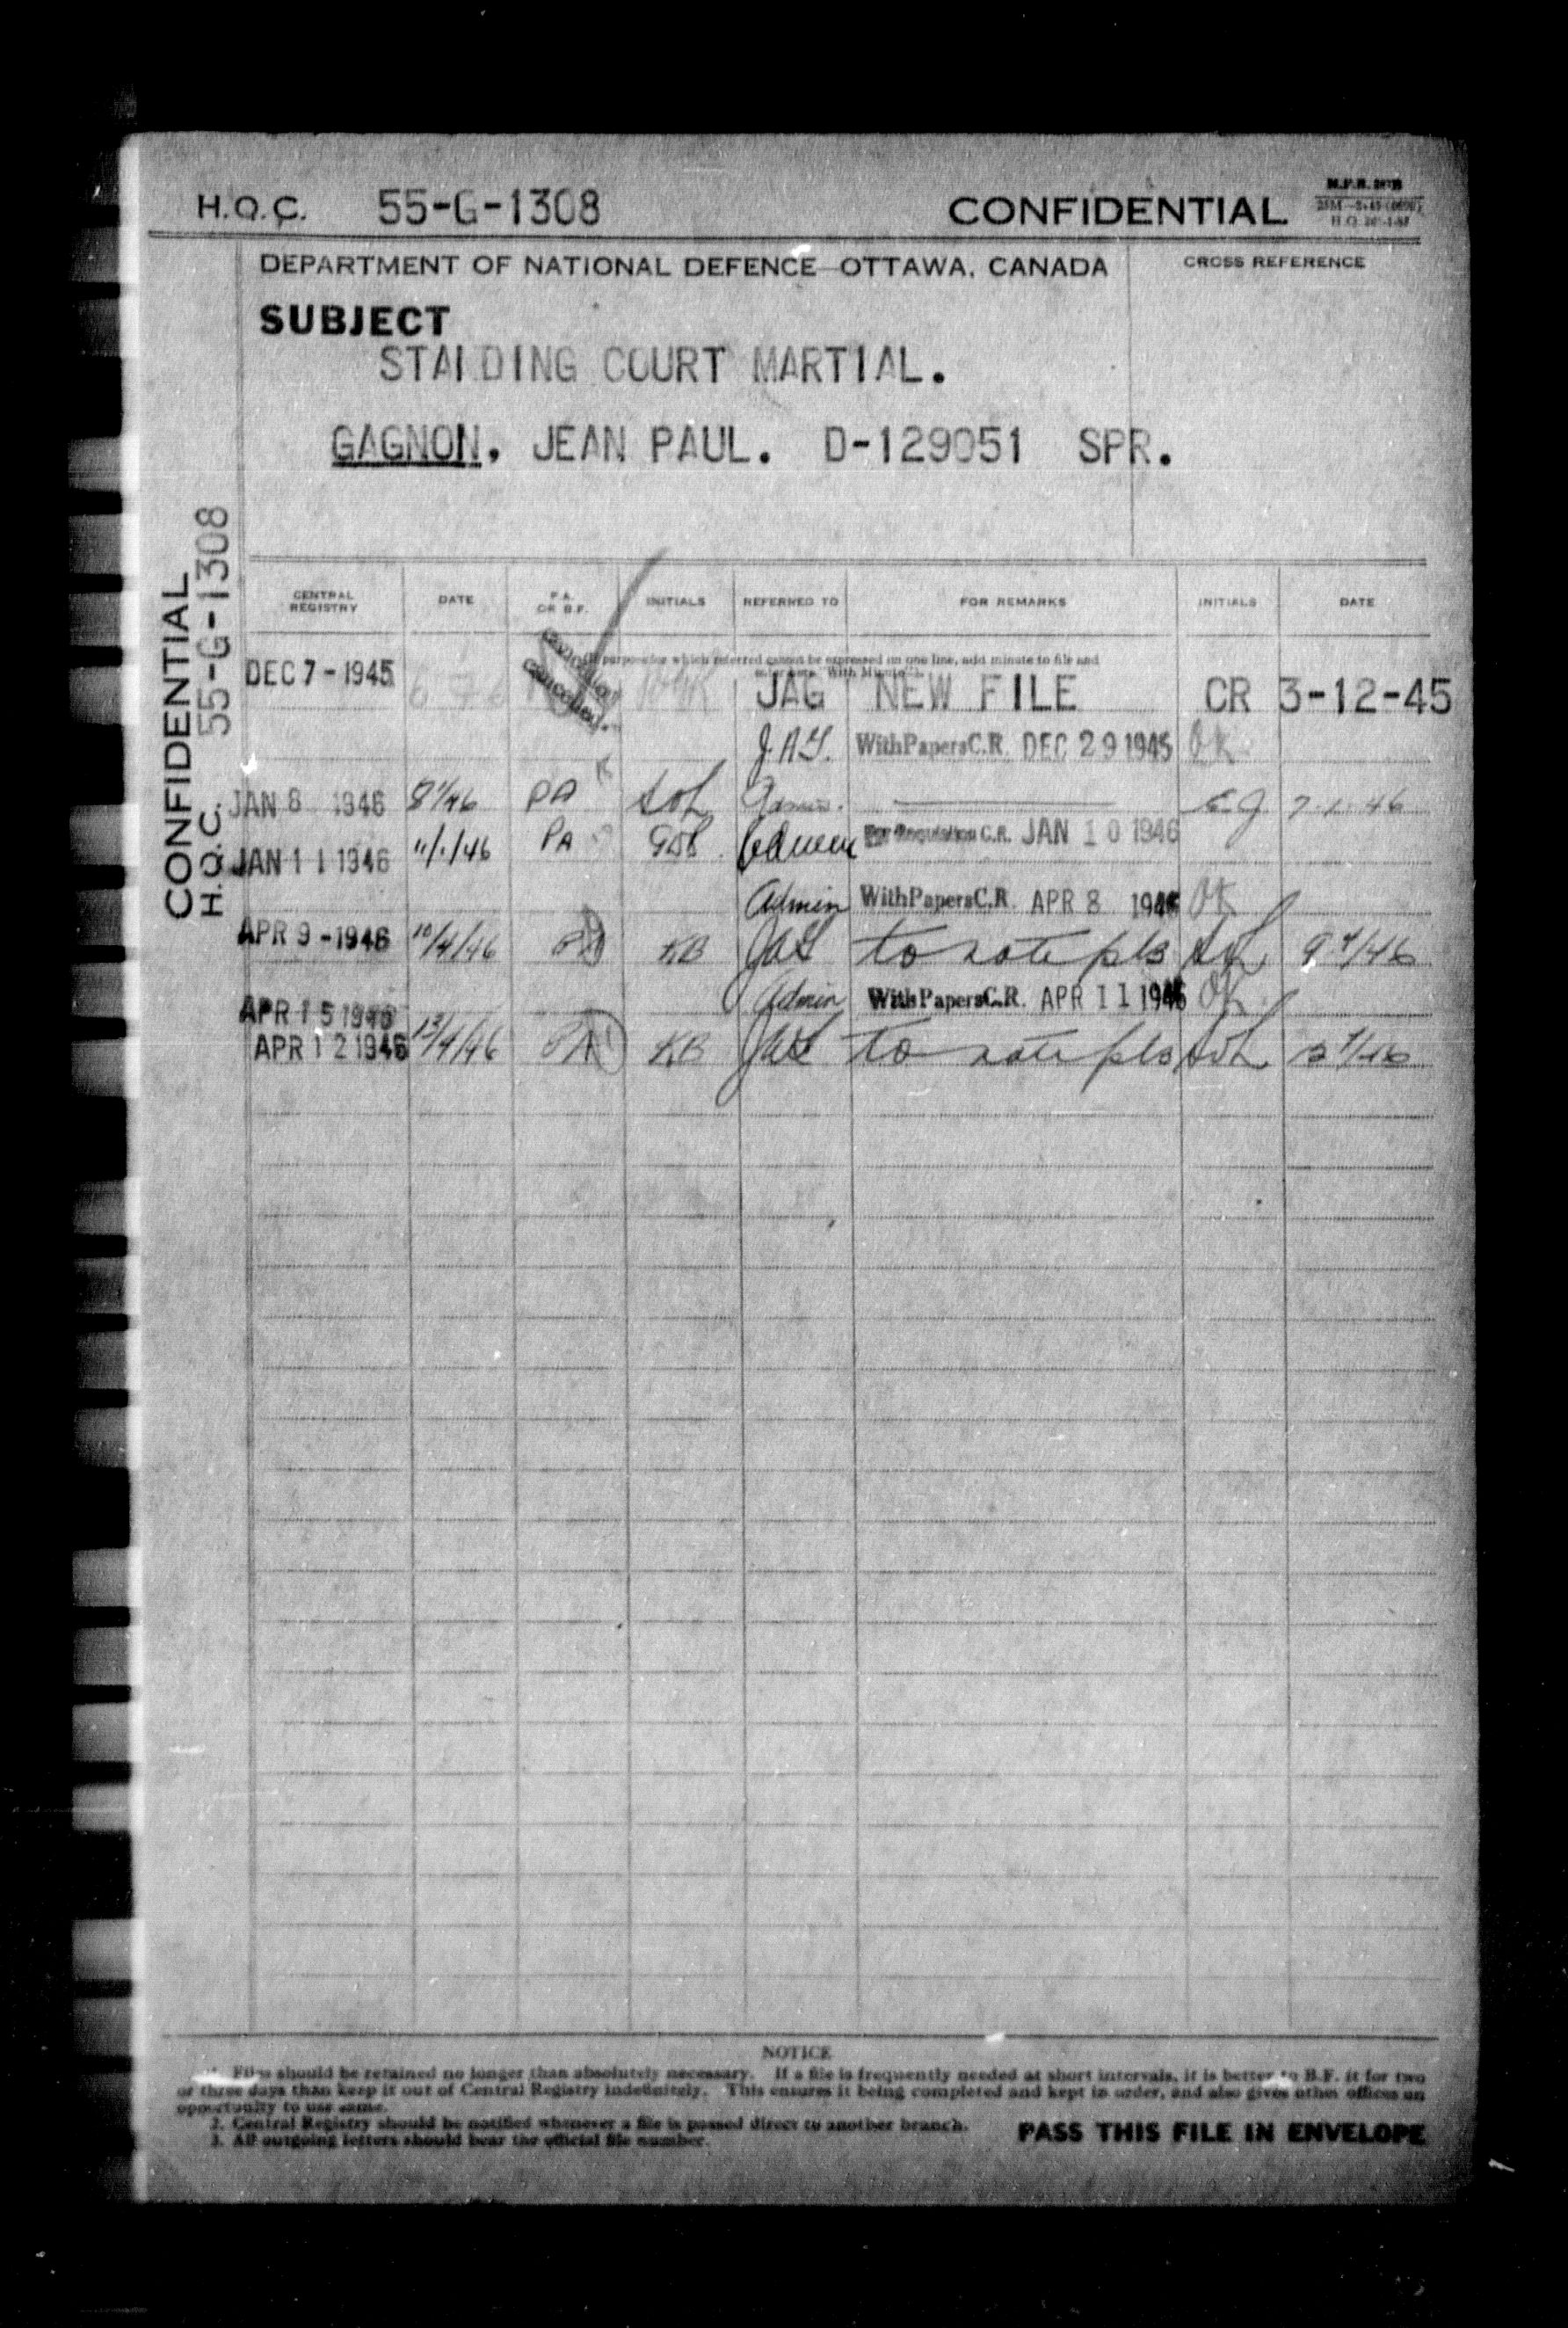 H.Q.C. 55-G-1308 CONFIDENTIAL
DEPARTMENT OF NATIONAL DEFENCE—OTTAWA, CANADA
CROSS REFERENCE
SUBJECT
STANDING COURT MARTIAL.
GAGNON, JEAN PAUL. D-129051 SPR.
CONFIDENTIAL
H.Q.C. 55-G-1308
CENTRAL REGISTRY DATE P.A. OR B.F. INITIALS REFERRED TO FOR REMARKS INITIALS DATE
(If purpose for which referred cannot be expressed on one line, add minute to file and
"With Minute")
DEC 7 - 1945 Cancelled. JAG NEW FILE CR 3-12-45
J.A.G. With Papers C.R. DEC 29 1945 OK
JAN 8 1946 8/1/46 PA Admin. 7-1-46
JAN 11 1946 11/1/46 PA For Requisition C.R. JAN 10 1946
Admin With Papers C.R. APR 8 1946 OK
APR 9 - 1946 10/4/46 PA KB JAG to note pls 9 4/46
Admin With Papers C.R. APR 11 1946 OK
APR 15 1946
APR 12 1946 13/4/46 PA KB JAG to note pls
NOTICE
1. Files should be retained no longer than absolutely necessary. If a file is frequently needed at short intervals, it is better to B.F. it for two
or three days than keep it out of Central Registry indefinitely. This ensures it being completed and kept in order, and also gives other offices an
opportunity to use same.
2. Central Registry should be notified whenever a file is passed direct to another branch.
3. All outgoing letters should bear the official file number.
PASS THIS FILE IN ENVELOPE